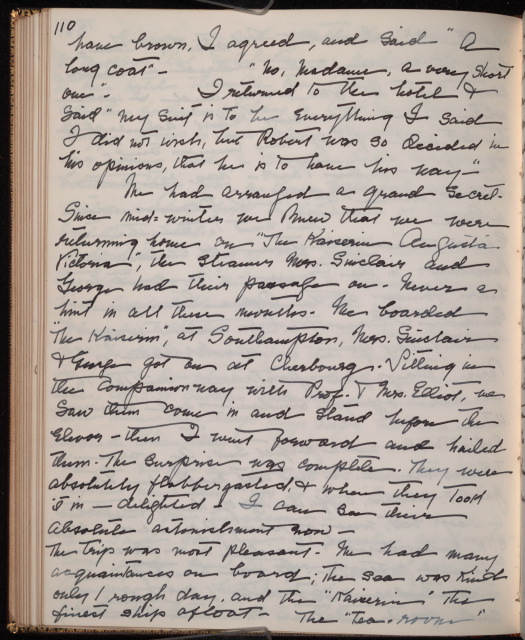 110
have brown, I agreed, and said "a
long coat" - "No, Madame, a very short
one". I returned to the hotel &
said "my suit is to be everything I said
I did not wish, but Robert was so decided in
his opinions, that he is to have his way-"
We had arranged a grand secret.
Since mid-winter we knew that we were
returning home on "The Kaiserin Augusta
Victoria", the steamer Mrs. Sinclair and
George had their passage on - Never a
hint in all these months. We boarded
"The Kaiserin", at Southampton, Mrs. Sinclair
& George got on at Cherbourg. Sitting in
the Companionway with Prof. & Mrs. Elliot, we
saw them come in and stand before the
Elevor - then I went forward and hailed
them. The surprise was complete. They were
absolutely flabbergasted, & when they took
it in - delighted - I can see their
absolute astonishment now -
The trip was most pleasant. We had many
acquaintances on board; the sea was kind
only 1 rough day, and the "Kaiserin" the
finest ship afloat - The "Tea-room"